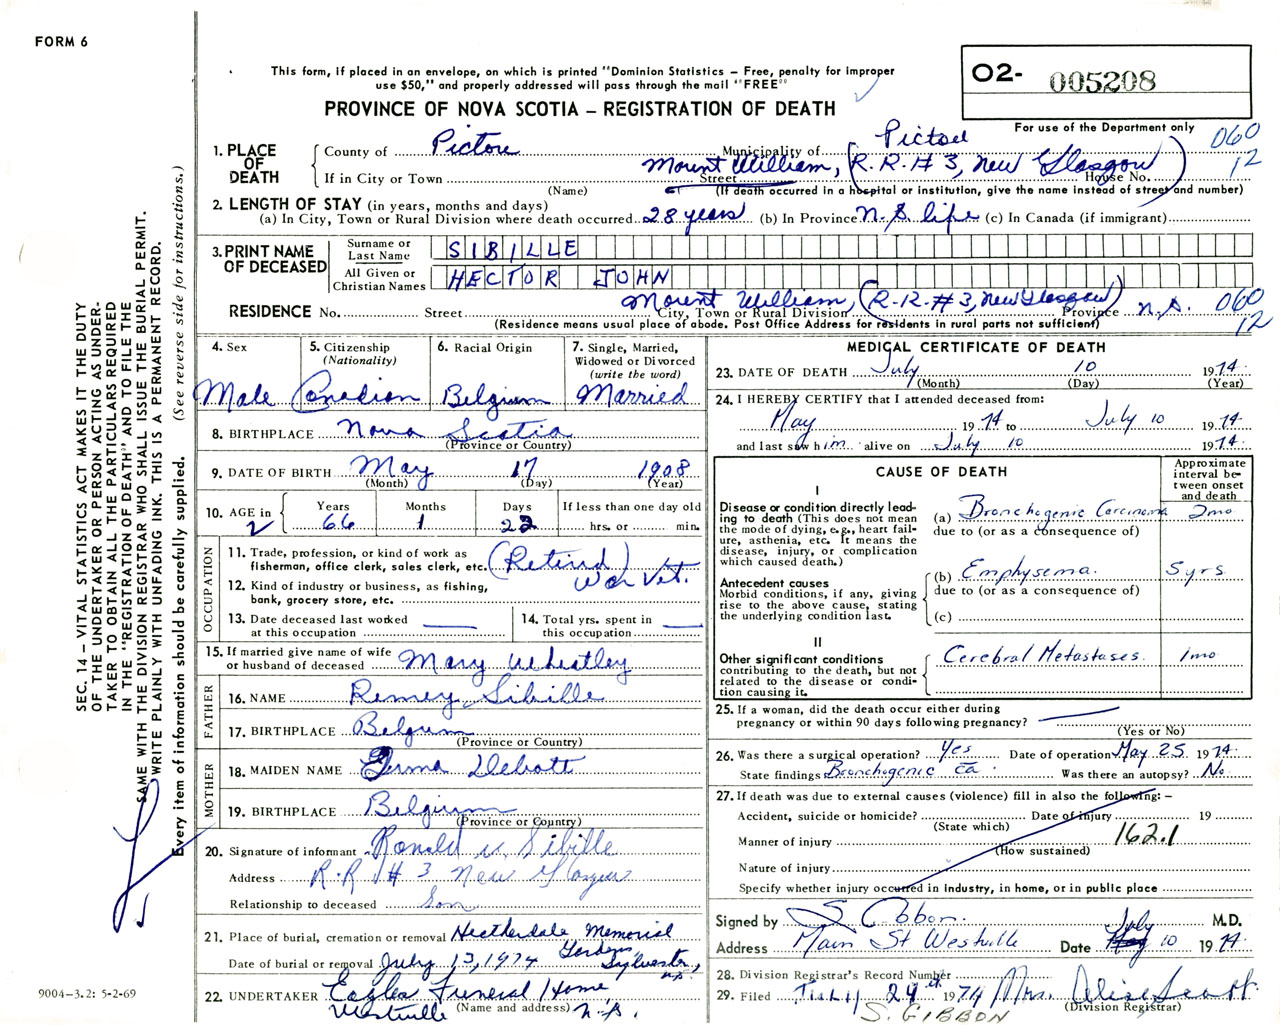 FORM 6
This form, if placed in an envelope, on which is printed "Dominion Statistics – Free, penalty for improper
use $50," and properly addressed will pass through the mail "FREE"
O2- 005208
PROVINCE OF NOVA SCOTIA – REGISTRATION OF DEATH
For use of the Department only
060
12
1. PLACE OF DEATH
County of Pictou Municipality of Pictou
If in City or Town Street House No.
Mount William, (R.R.# 3, New Glasgow)
(Name) (If death occurred in a hospital or institution, give the name instead of street and number)
2. LENGTH OF STAY (in years, months and days)
(a) In City, Town or Rural Division where death occurred 28 years (b) In Province N.S. life (c) In Canada (if immigrant)
3. PRINT NAME OF DECEASED
Surname or Last Name SIBILLE
All Given or Christian Names HECTOR JOHN
Mount William, (R.R.#3, New Glasgow)
RESIDENCE No. Street City, Town or Rural Division Province N.S. 060
12
(Residence means usual place of abode. Post Office Address for residents in rural parts not sufficient)
4. Sex
Male
5. Citizenship (Nationality)
Canadian
6. Racial Origin
Belgium
7. Single, Married, Widowed or Divorced (write the word)
Married
8. BIRTHPLACE Nova Scotia
(Province or Country)
9. DATE OF BIRTH May 17 1908
(Month) (Day) (Year)
10. AGE in Years Months Days If less than one day old
66 1 hrs. or min.
OCCUPATION
11. Trade, profession, or kind of work as
fisherman, office clerk, sales clerk, etc. (Retired)
War Vet.
12. Kind of industry or business, as fishing,
bank, grocery store, etc.
13. Date deceased last worked
at this occupation
14. Total yrs. spent in
this occupation
15. If married give name of wife
or husband of deceased Mary Wheatley
FATHER
16. NAME Remey Sibille
17. BIRTHPLACE Belgium
(Province or Country)
MOTHER
18. MAIDEN NAME
19. BIRTHPLACE Belgium
(Province or Country)
20. Signature of informant Ronald Sibille
Address R.R # 3 New Glasgow
Relationship to deceased Son
21. Place of burial, cremation or removal Heatherdale Memorial
Gardens
Date of burial or removal July 13, 1974 Sylvester, N.S.
22. UNDERTAKER Eagles Funeral Home,
Westville (Name and address) N.S.
MEDICAL CERTIFICATE OF DEATH
23. DATE OF DEATH July 10 1974
(Month) (Day) (Year)
24. I HEREBY CERTIFY that I attended deceased from:
May 1974 to July 10 1974
and last saw him alive on July 10 1974
CAUSE OF DEATH
Approximate interval between onset and death
I
Disease or condition directly lead-
ing to death (This does not mean
the mode of dying, e.g., heart fail-
ure, asthenia, etc. It means the
disease, injury, or complication
which caused death.)
(a) Bronchogenic Carcinoma 2mo
due to (or as a consequence of)
Antecedent causes
Morbid conditions, if any, giving
rise to the above cause, stating
the underlying condition last.
(b) Emphysema. 5 yrs
due to (or as a consequence of)
(c)
II
Other significant conditions
contributing to the death, but not
related to the disease or condi-
tion causing it.
Cerebral Metastases. 1mo
25. If a woman, did the death occur either during
pregnancy or within 90 days following pregnancy?
(Yes or No)
26. Was there a surgical operation? Yes Date of operation May 25 1974
State findings Bronchogenic Ca. Was there an autopsy? No
27. If death was due to external causes (violence) fill in also the following: –
Accident, suicide or homicide? Date of injury 19
(State which)
Manner of injury 162.1
(How sustained)
Nature of injury
Specify whether injury occurred in industry, in home, or in public place
Signed by S Gibbon. M.D.
Address Main St Westville Date July 10 1974
28. Division Registrar's Record Number
29. Filed July 24th 1974 Mrs. Alice Scott
(Division Registrar)
S. GIBBON
SEC. 14 – VITAL STATISTICS ACT MAKES IT THE DUTY
OF THE UNDERTAKER OR PERSON ACTING AS UNDER-
TAKER TO OBTAIN ALL THE PARTICULARS REQUIRED
IN THE "REGISTRATION OF DEATH" AND TO FILE THE
SAME WITH THE DIVISION REGISTRAR WHO SHALL ISSUE THE BURIAL PERMIT.
WRITE PLAINLY WITH UNFADING INK. THIS IS A PERMANENT RECORD.
Every item of information should be carefully supplied. (See reverse side for instructions.)
9004-3.2: 5-2-69